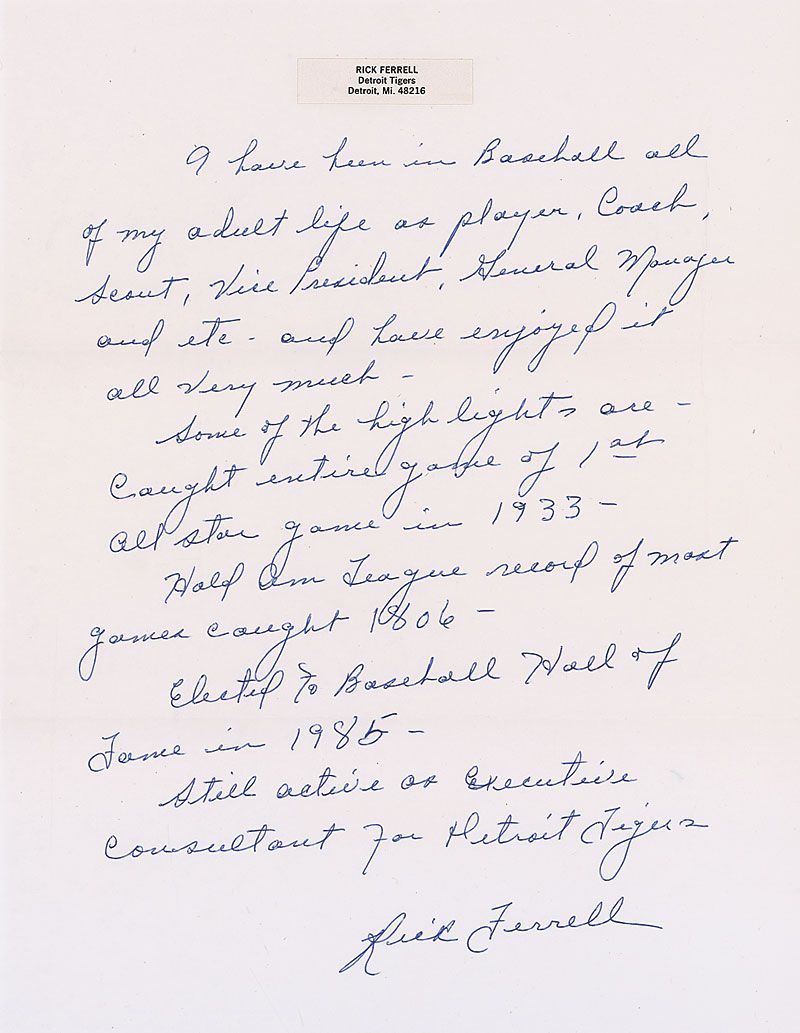 RICK FERRELL
Detroit Tigers
Detroit, Mi. 48216
I have been in Baseball all
of my adult life as player, Coach,
Scout, Vice President, General Manager
and etc - and have enjoyed it
all very much -
Some of the high lights are -
Caught entire game of 1st
All star game in 1933 -
Hold Am League record of most
games caught 1806 -
Elected to Baseball Hall of
Fame in 1985 -
Still active as Executive
Consultant for Detroit Tigers
Rick Ferrell